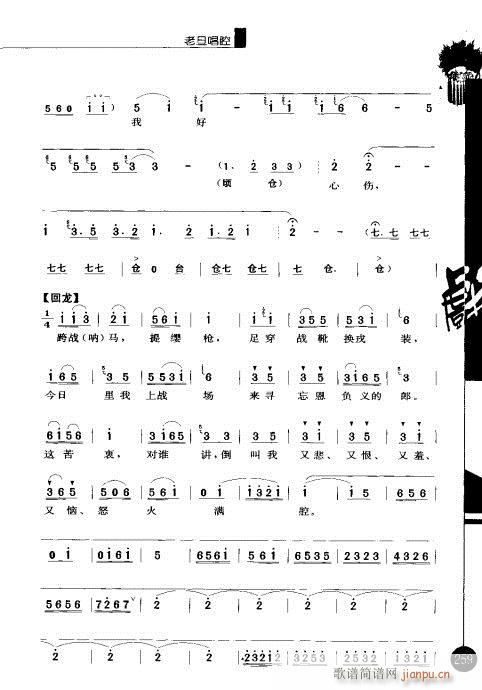 老旦唱腔
5 6 0 i i ) 5 i i - i i i 6 - 5
我 好
5 5 5 5 3 3 - (1. 2 3 3) 2 2 -
(顷 仓) 心 伤,
七 七 七 七 | 仓 0 台 | 仓七 七七 | 七 仓. 仓)
【回龙】
1/4 i i 3 | 2 i | 5 6 i | 5 i | 3 5 | 3 2 i | 3 5 i | 6 |
跨战(呐)马, 提 缨 枪, 足穿 战 靴 换戎 装,
i 6 5 | 3 3 5 | 5 5 3 i | 6 5 | 3 3 | 3 5 | 3 i 6 5 | 3 |
今日 里我 上战 场 来寻 忘恩 负义的 郎。
6 i 5 6 | i | 3 i 6 5 | 3 3 | 3 5 | 3 i | 3 i | 3 5 |
这苦 衷, 对谁 讲,倒 叫我 又悲、 又恨、 又羞、
3 6 5 | 5 0 6 | 5 6 i | 0 i | i 3 2 i | i 5 | 6 5 6 0 | 5 |
又恼、 怒 火 满 腔。
0 i | 0 i 6 i | 5 | 6 5 6 i | 5 6 i | 6 5 3 5 | 2 3 2 3 | 4 3 2 6 |
5 6 5 6 | 7 2 6 7 | 2 | 2 | 2 | 2 | 2 | 2 |
259
歌谱简谱网
jianpu.cn